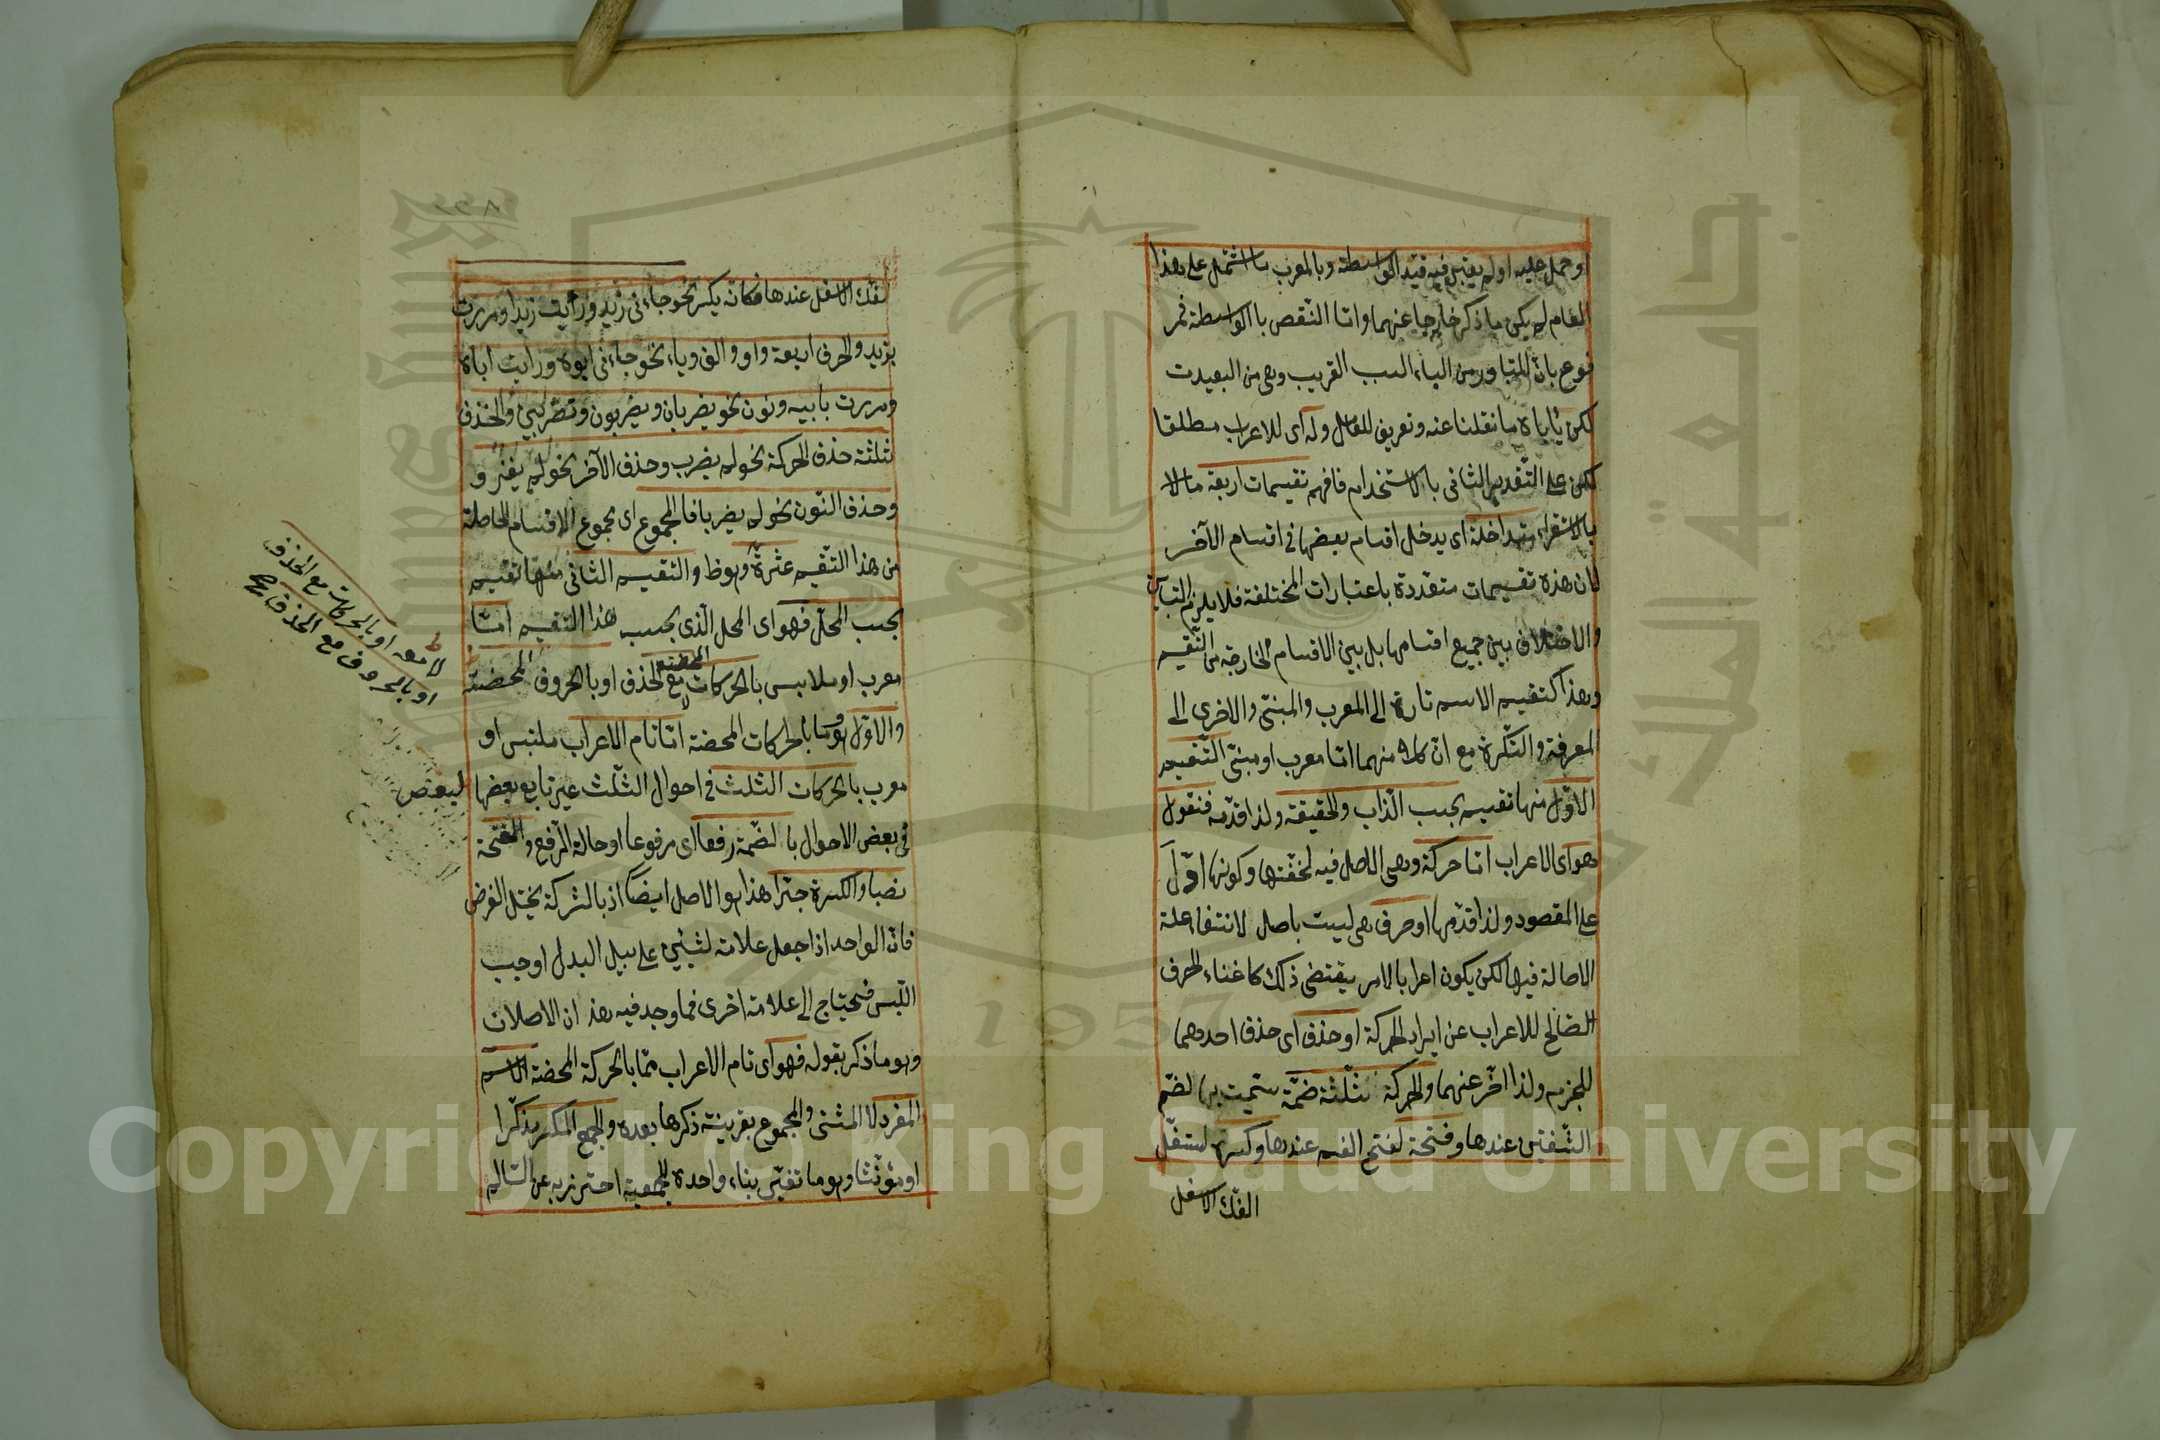 او حمل عليه او لم يعتبر فيه قيد الواسطة وبالمعرب ما اشتمل على هذا
المقام لم يكن ما ذكر خارجا عنهما واما النقص بالواسطة فمر
فوع بان المتبادر من الباء السبب القريب وهى من البعيدة
لكن ياباه ما نقلنا عنه وتعريف للعامل وله اى للاعراب مطلقا
لكن على التقدير الثانى بالاستخدام فافهم تقسيمات اربعة مالا
بالاستقراء متداخلة اى يدخل اقسام بعضها فى اقسام الآخر
لان هذه تقسيمات متعددة باعتبارات المختلفة فلا يلزم التباين
والاختلاف بين جميع اقسامها بل بين الاقسام الخارجة من التقسيم
وهذا كتقسيم الاسم تارة الى المعرب والمبنى والاخرى الى
المعرفة والنكرة مع ان كلا منهما اما معرب او مبنى التقسيم
الاول منها تقسيم بحسب الذات والحقيقة ولذا قدمه فنقول
هو اى الاعراب اما حركة وهى الاصل فيه لخفتها وكونها اول
على المقصود ولذا قدمها او حرف هى ليست باصل لانتفاء علة
الاصالة فيها لكن يكون اعرابا لامر يقتضى ذلك كاغناء الحرف
الصالح للاعراب عن ايراد الحركة او حذف اى حذف احدهما
للجزم ولذا اخر عنهما والحركة ثلثة ضمة سميت بها لضم
الشفتين عندها وفتحة لفتح الفم عندها وكسرة لتسفل
الفك الاسفل
لفك الاسفل عندها فكانه يكسر نحو جاءنى زيد ورايت زيدا ومررت
بزيد والحرف اربعة واو والف وياء نحو جاءنى ابوه ورايت اباه
ومررت بابيه ونون نحو يضربان ويضربون وتضربين والحذف
ثلثة حذف الحركة نحو لم يضرب وحذف الآخر نحو لم يغز و
وحذف النون نحو لم يضربا فالمجموع اى مجموع الاقسام الحاصلة
من هذا التقسيم عشرة وهو ظ والتقسيم الثانى منها تقسيم
بحسب المحل فهو اى المحل الذى بحسب هذا التقسيم اما
معرب او ملابس بالحركات المحضة مع الحذف او بالحروف المحضة
والاول هو ما بالحركات المحضة اما تام الاعراب ملتبس او
معرب بالحركات الثلث فى احوال الثلث غير تابع بعضها لبعض
فى بعض الاحوال بالضمة رفعا اى مرفوعا او حالة الرفع والفتحة
نصبا والكسرة جرا هذا هو الاصل ايضا اذ بالشركة يختل الغرض
فان الواحد اذا جعل علامة لشيئين على سبيل البدل اوجب
اللبس فيحتاج الى علامة اخرى فما وجد فيه هذان الاصلان
وهو ما ذكر بقوله فهو اى تام الاعراب مما بالحركة المحضة الاسم
المفرد لا المثنى والمجموع بقرينة ذكرها بعده والجمع المكسر مذكرا
او مؤنثا وهو ما تغير بناء واحده للجمعية احترز به عن السالم
لا معه او بالحركات مع الحذف
او بالحروف مع الحذف صح
1957
Copyright © King Saud University